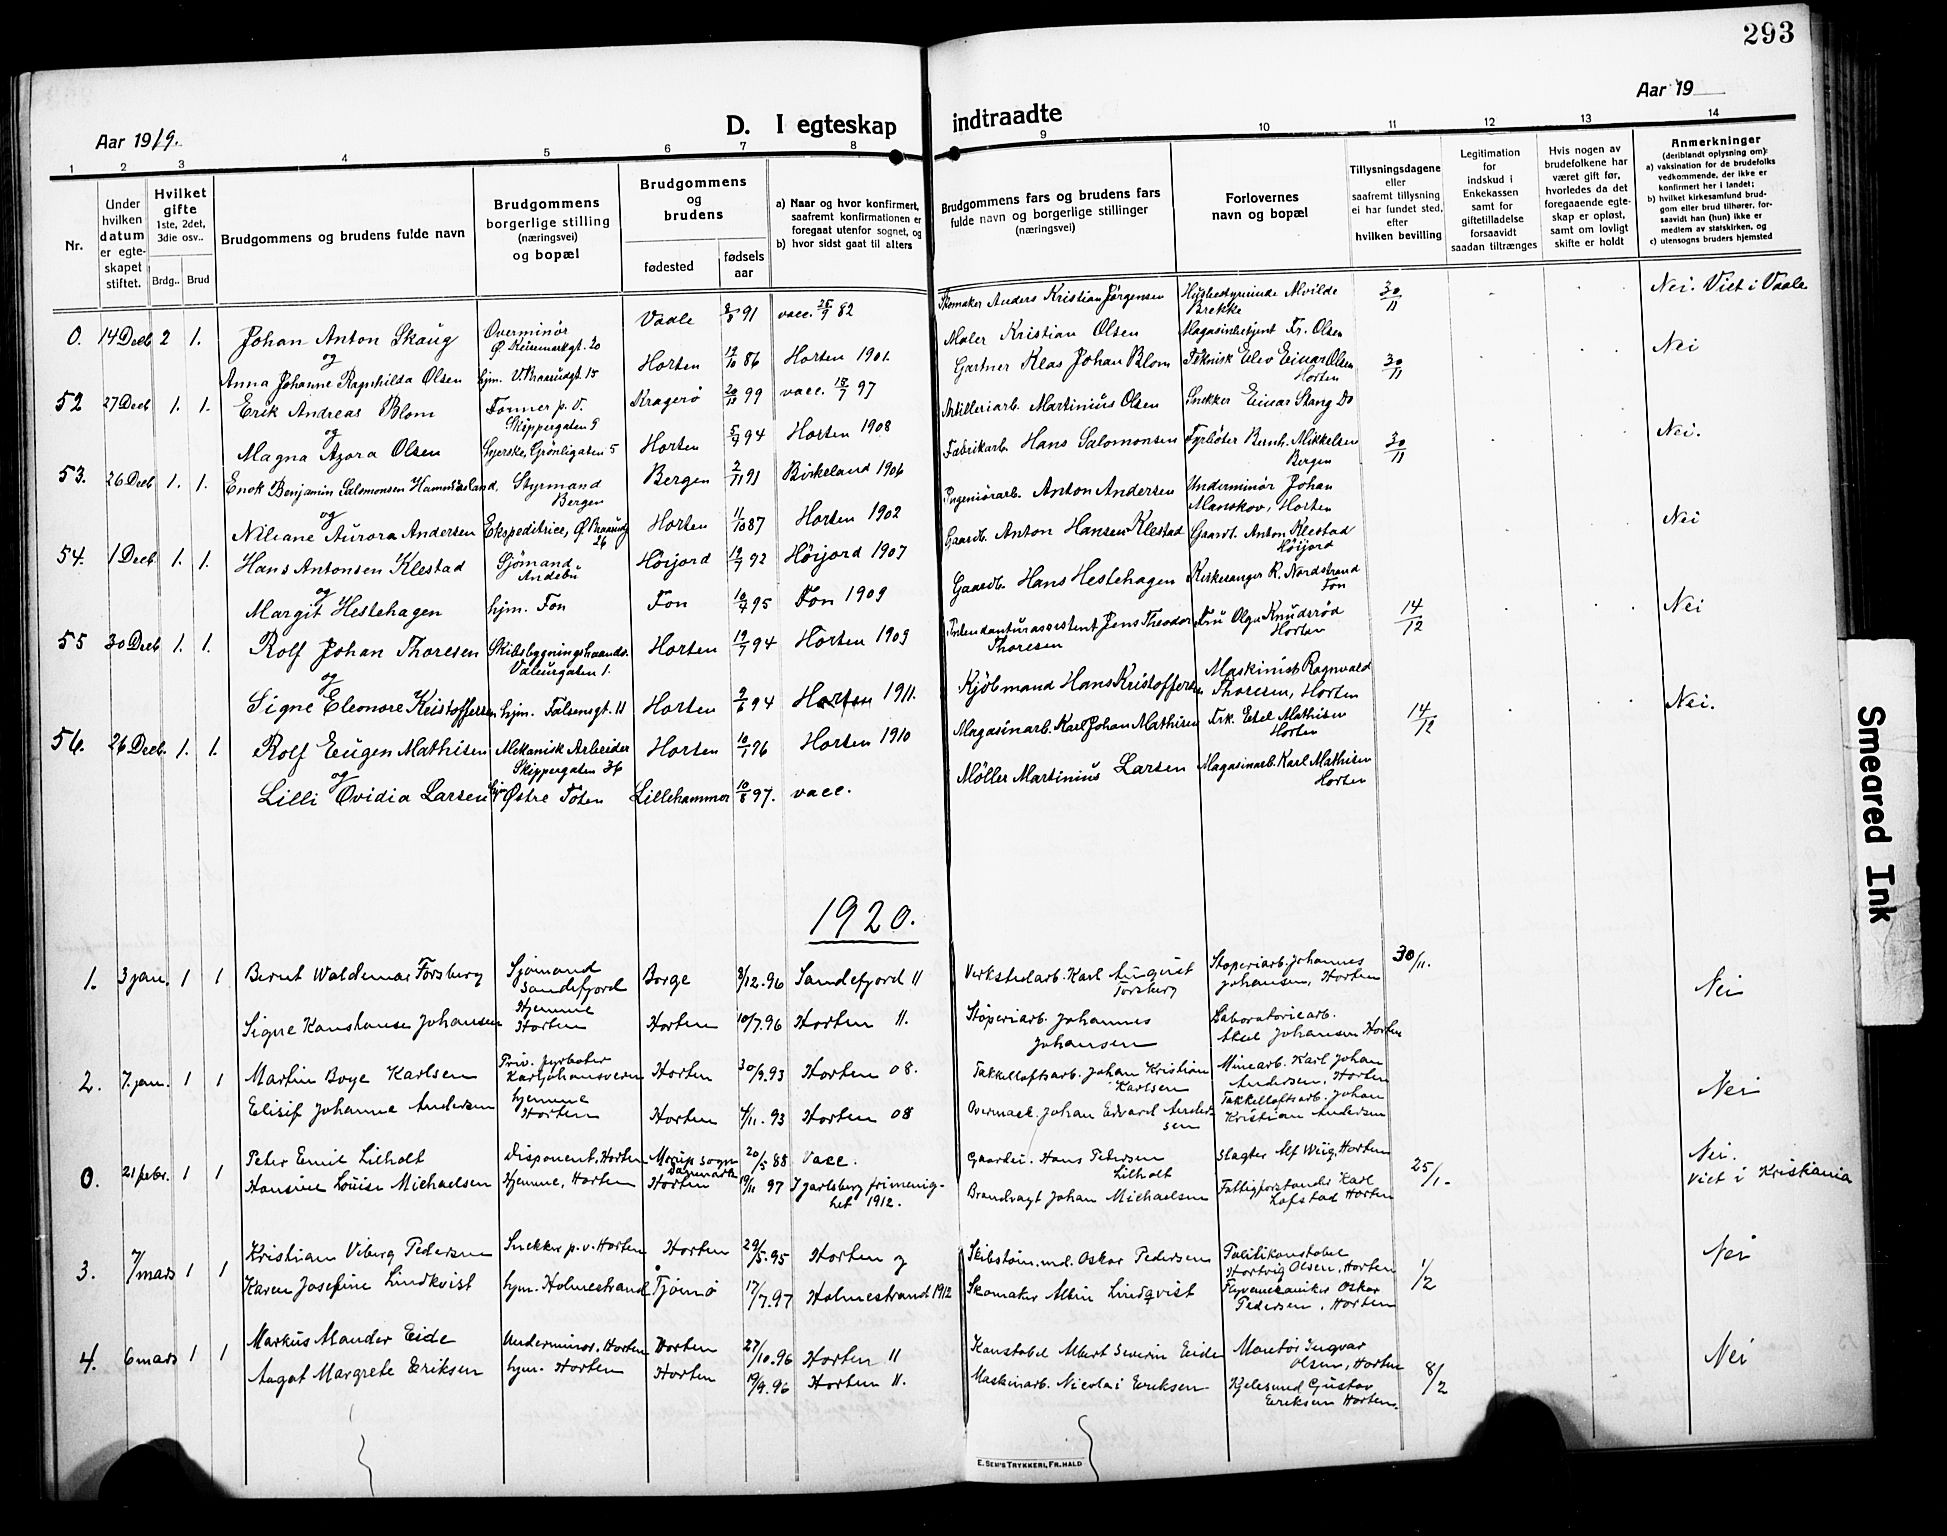 293
Aar 1919.
D. I egteskap indtraadte
Aar 19
1 2 3 4 5 6 7 8 9 10 11 12 13 14
Nr.
Under hvilken datum er egte-skapet stiftet.
Hvilket gifte 1ste, 2det, 3die osv..
Brdg.. Brud
Brudgommens og brudens fulde navn
Brudgommens borgerlige stilling (næringsvei) og bopæl
Brudgommens og brudens
fødested
fødsels aar
a) Naar og hvor konfirmert, saafremt konfirmationen er foregaat utenfor sognet, og
b) hvor sidst gaat til alters
Brudgommens fars og brudens fars fulde navn og borgerlige stillinger (næringsvei)
Forlovernes navn og bopæl
Tillysningsdagene eller saafremt tillysning ei har fundet sted, efter hvilken bevilling
Legitimation for indskud i Enkekassen samt for giftetilladelse forsaavidt saadan tiltrænges
Hvis nogen av brudefolkene har været gift før, hvorledes da det foregaaende egte-skap er opløst, samt om lovligt skifte er holdt
Anmerkninger (deriblandt oplysning om):
a) vaksination for de brudefolks vedkommende, der ikke er konfirmert her i landet;
b) hvilket kirkesamfund brud-gom eller brud tilhører, for-saavidt han (hun) ikke er medlem av statskirken, og
c) utensogns bruders hjemsted
0. 14 Decb 2 1. Johan Anton Skaug Overminør Vaale 91 vacc. 25/9 82 Skomaker Anders Kristian Jörgensen Husbestyrerinde Alvilde Brekke 30/11 Nei. Viet i Vaale
og
Anna Johanne Ragnhilda Olsen hjm. V. Braarudgt. 15 Horten 19/10 86 Horten 1901. Maler Kristian Olsen Magasinbetjent Fr. Olsen
52 27 Decb 1. 1. Erik Andreas Blom Former p.v. Skippergaten 9 Kragerö 99 vacc. 15/7 97 Gartner Klas Johan Blom Teknisk Elev Einar Olsen Horten 30/11 Nei
og
Magna Azora Olsen Syerske, Grönligaten 5 Horten 5/7 94 Horten 1908 Artilleriarb. Martinius Olsen Snekker Einar Stang Do
53. 26 Decb 1. 1. Enok Benjamin Salomonsen Hammersland, Styrmand Bergen Bergen 2/11 91 Birkeland 1906 Fabrikarb. Hans Salomonsen Fyrböter Bernh. Mikkelsen Bergen 30/11 Nei.
og
Niliane Aurora Andersen Ekspeditrice, Ø. Braarudg 26 Horten 11/10 87 Horten 1902 Ingeniörarb. Anton Andersen Underminör Johan Manskov, Horten
54. 1 Decb 1. 1. Hans Antonsen Klestad Sjömand Andebu Höijord 19/7 92 Höijord 1907 Gaardb. Anton Hansen Klestad Gaardb. Anton Klestad Höijord Nei
og
Margit Hestehagen hjm. Fon Fon 10/7 95 Fon 1909 Gaardb. Hans Hestehagen Kirkesanger R. Nordstrand Fon
55 30 Decb 1. 1. Rolf Johan Thoresen Skibsbygningshaandv. Valeurgaten 1. Horten 19/7 94 Horten 1909 Intendanturassistent Jens Theodor Thoresen Fru Olga Knudsröd Horten 14/12 Nei
og
Signe Eleonore Kristoffersen hjm. Falsensgt. 11 Horten 2/6 94 Horten 1911. Kjöbmand Hans Kristoffersen Maskinist Ragnvald Thoresen, Horten
56. 26 Decb. 1. 1. Rolf Eugen Mathisen Mekanisk Arbeider Skippergaten 36 Horten 10/1 96 Horten 1910 Magasinarb. Karl Johan Mathisen Frk. Etel Mathisen Horten 14/12 Nei.
og
Lilli Ovidia Larsen hjm. Østre Toten Lillehammer 10/8 97. vacc. Möller Martinius Larsen Magasinarb. Karl Mathisen Horten
1920.
1. 3 jan. 1 1 Bernt Waldemar Forsberg Sjømand Sandefjord Borge 8/12.96 Sandefjord 11 Verkstedarb. Karl August Forsberg Støperiarb. Johannes Johansen, Horten 30/11. Nei
Signe Konstanse Johansen Hjemme Horten Horten 10/7.96 Horten 11. Støperiarb. Johannes Johansen Laboratoriearb. Aksel Johansen Horten
2. 7. jan. 1 1 Martin Boye Karlsen Priv. fyrbøter Karljohansvern Horten 30/9.93 Horten 08. Takkelloftsarb. Johan Kristian Karlsen Minearb. Karl Johan Andersen, Horten Nei
Elisif Johanne Andersen hjemme Horten Horten 4/11. 93 Horten 08 Overmask. Johan Edvard Andersen Takkelloftsarb. Johan Kristian Andersen
0. 21 febr. 1 1 Peter Emil Lilholt Disponent, Horten Morup sogn Danmark 20/5 88 Vacc. Gaardei. Hans Pedersen Lilholt Slagter Alf Wiig, Horten 25/1. Nei. Viet i Kristiania
Hansine Louise Michaelsen Hjemme, Horten Horten 19/11 97 Jarlsberg frimenighet 1912. Brandvagt Johan Michaelsen Fattigforstander Karl Lofstad Horten
3. 7/mars 1 1 Kristian Viberg Pedersen Snekker p.v. Horten Horten 29/5.95 Horten og Skibstøm.md. Oskar Pedersen Politikonstabel Hartvig Olsen, Horten 1/2 Nei
Karen Josefine Lindkvist hjm. Holmestrand Tjømø 17/7.97 Holmestrand 1912 Skomaker Albin Lindqvist Flyvemekaniker Oskar Pedersen, Horten
4. 6 mars 1 1 Markus Mander Eide Underminør. Horten Horten 27/10.96 Horten 11 Konstabel Albert Severin Eide Montør Ingvar Olsen, Horten 8/2 Nei
Aagot Margrete Eriksen hjm. Horten Horten 19/9.96 Horten 11. Maskinarb. Nicolai Eriksen Kjelesmed Gustav Eriksen Horten.
E. Sem's Trykkeri, Fr.hald
Smeared Ink